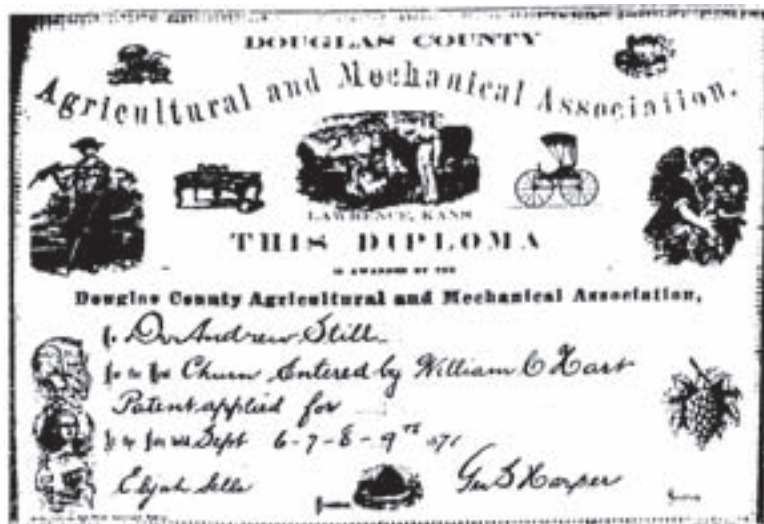 DOUGLAS COUNTY
Agricultural and Mechanical Association.
LAWRENCE, KANS
THIS DIPLOMA
IS AWARDED BY THE
Douglas County Agricultural and Mechanical Association,
to Dr Andrew Still
for the best Churn Entered by William C Hart
Patent applied for
Sept 6-7-8-9th
Elijah Sells
Geo S Harper